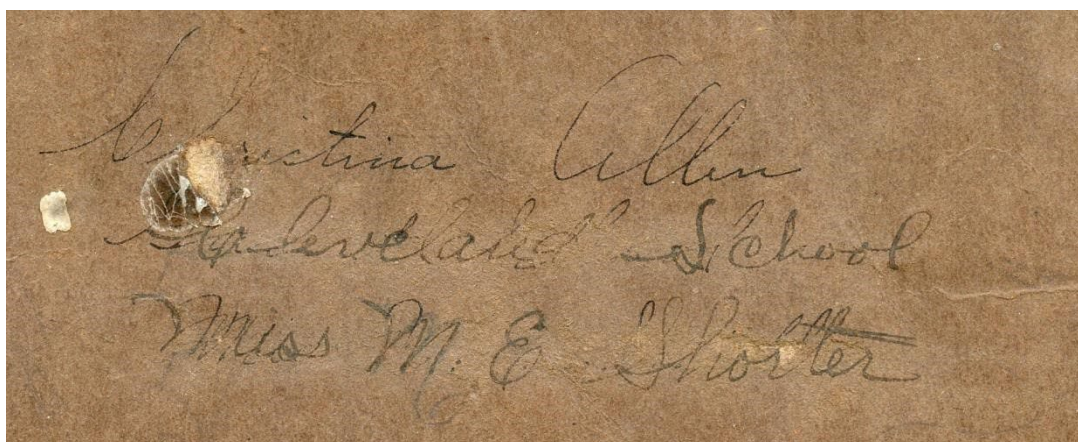 Christina Allen
Cleveland School
Miss M. E Shorter